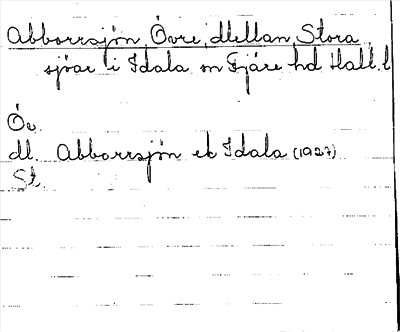 Abborrsjön, Övre, Mellan, Stora
sjöar i Idala sn Fjäre hd Hall. l
Öv.
M. Abborrsjön ek Idala (1927)
St.